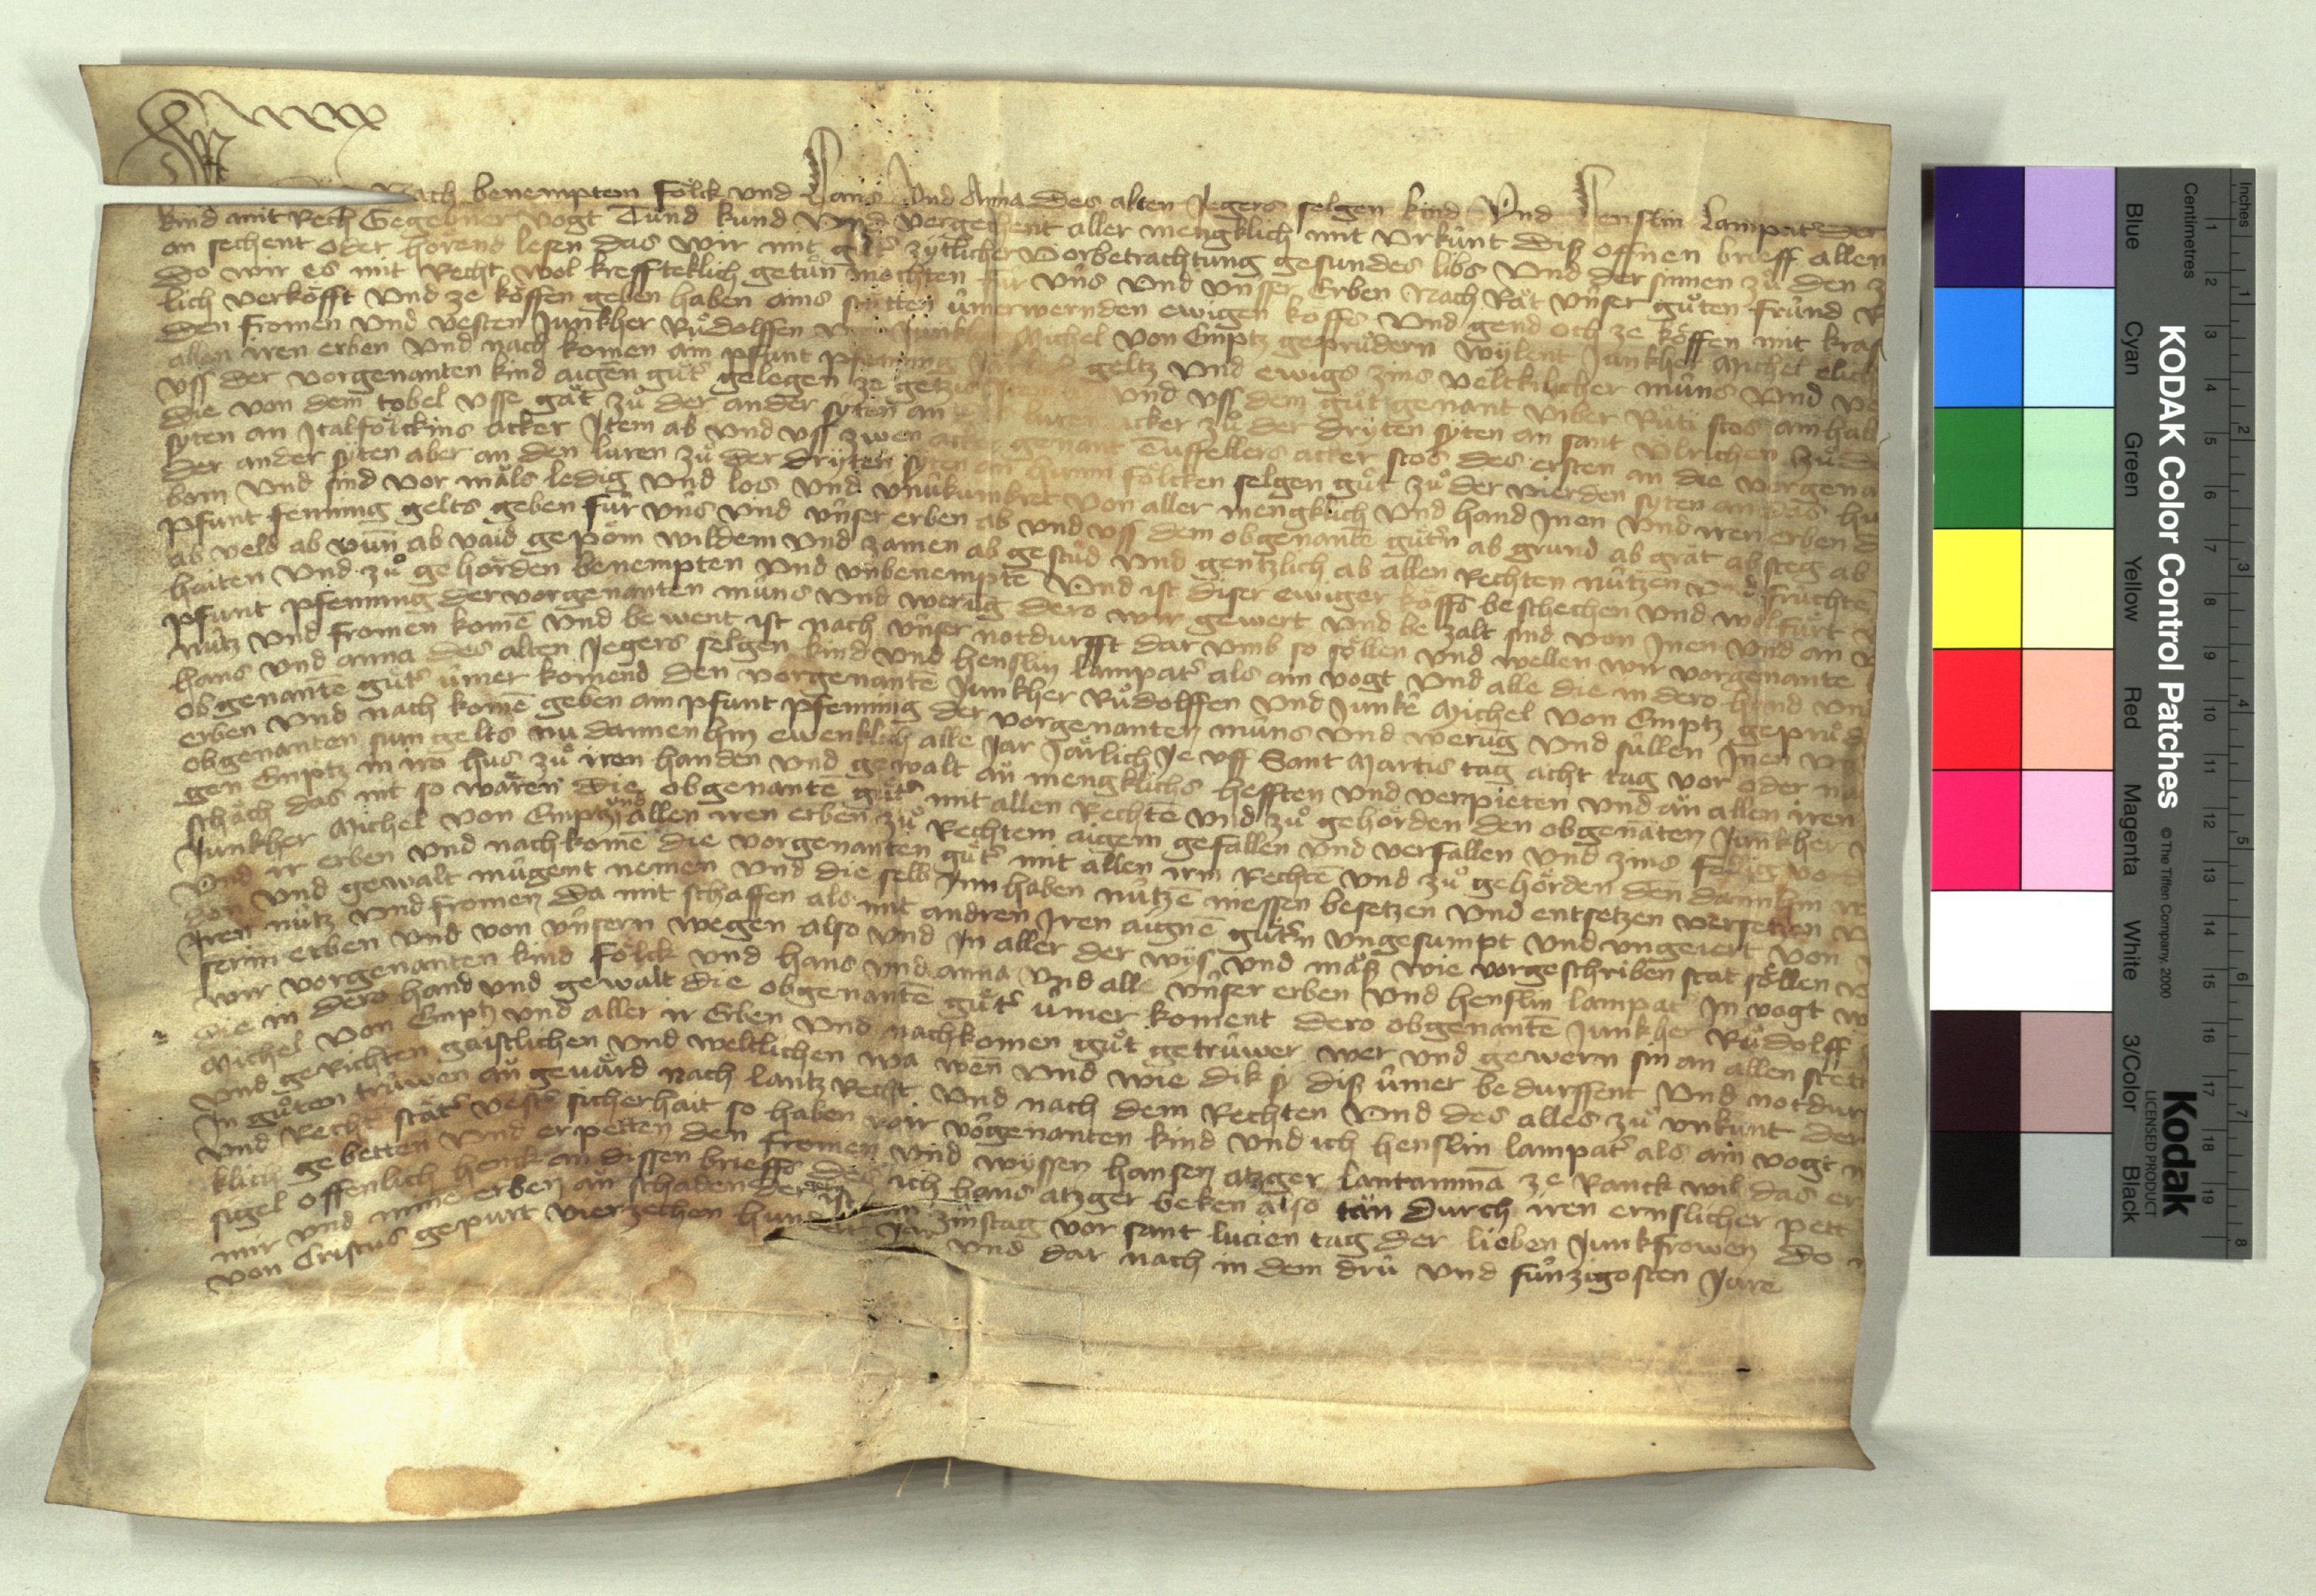 Wir Nach benempten Fölck vnd Hans Vnd Anna Des alten Jegers selgen kind Vnd Henslin Lampat Der
kind mit Rech Gegebner vogt Tund kund Vnd vergehent aller mengklich mit Vrkünt diß offnen brieff allen
an sechent oder hörend lesen das wir mit gůts zytlicher Vorbetrachtung gesundes libs Vnd der sinnen zů den
Do wir es mit Recht wol kreffteklich getůn mochten für vns Vnd vnsser Erben Nach Rät vnser gůten fründ
lich verköfft Vnd ze köffen geben haben ains stätten ümerwernden ewigen köffs Vnd gend och ze köffen mit kraf
Den fromen Vnd vesten Junkher Růdolffen Junkher Michel von Emptz geprüdern wylent Junkher Michel elich
allen iren erben Vnd nach komen ain pfunt pfenning geltz Vnd ewigs zins velckilicher müns Vnd
Vss der vorgenanten kind aigen gůt gelegen ze vnd vss dem gůt genant viber Rüti stos am
die von dem tobel vsse gät zů der ander syten an acker zů der dryten syten an sant Vlrichen zů
syten an Jtalfölckins acker Jtem ab Vnd vss zwen acker genant Tuffellers acker stos des ersten an die vorgena
Der ander syten aber an den luren zů der dryten syten an fölcken selgen gůt zů der vierden syten an das
bom Vnd sind vor mäls ledig Vnd los Vnd vnükumkret von aller mengklich Vnd hand Jnen Vnd iren erben
pfunt fenning gelts geben für vns Vnd vnser erben ab Vnd vss dem obgenantē gůtrn ab grund ab grät ab steg ab
ab veld ab vun ab vaid gepöm wildem Vnd zamen ab gestüd Vnd gentzlich ab allen Rechten nützen vnd früchtē
haiten Vnd zů gehörden benempten Vnd vnbenemptē Vnd ist diser ewiger köffs beschechen Vnd
pfunt pfenning der vorgenanten müns Vnd werüg dero wir gewert Vnd be zalt sind von Jnen Vnd an
nütz Vnd fromen komē Vnd be went ist nach vnser notdurfft dar vmb so söllen Vnd wellen wir vorgenante
hans Vnd anna des alten Jegers selgen kind Vnd henslin lampatr als ain vogt Vnd alle die in dero hand
obgenantē gůtr ümer komend den vorgenantē Junkher Růdolffen Vnd Junkē Michel von Emptz geprüd
erben Vnd nach komē geben ain pfunt pfenning der vorgenanten müns Vnd werüg Vnd süllen Jnen
obgenanten sum gelts nu dannen hin ewenklich alle Jar Järlich Je vff Sant Martis tag acht tag vor oder
gen Emptz in iro hus zů iren handen Vnd gewalt än mengklichs hefften Vnd verpieten Vnd än allen iren
schäch das nit so wären die obgenantē gůtr mit allen Rechtē Vnd zů gehörden den obgenäten Junkher
Junkher Michel von Emptz vnd allen iren erben zů Rechtem aigem gefallen Vnd verfallen Vnd zins
Vnd ir erben Vnd nachkomē die vorgenanten gůtr mit allen irn Rechtē Vnd zů gehörden den dannhin
den Vnd gewalt mügent nemen Vnd die selb Jnn haben nützē niessen besetzen Vnd entsetzen versetzen
Jren nütz Vnd fromen da mit schaffen als mit andren Jren aignē gůtrn vngesumpt Vnd vngeiert von
serin erben Vnd von vnsern wegen also Vnd Jn aller der wys Vnd mäß wie vorgeschriben stat söllen
Wir vorgenanten kind Fölck Vnd hans Vnd anna Vnd alle vnser erben Vnd henslin lampat Jn vogt
Die in dero hand Vnd gewalt die obgenantē gůtr ümer koment dero obgenantē Junkher Růdolff
Michel von Emptz Vnd aller ir Erben Vnd nachkomen gůt getrüwer wer Vnd gewern sin an allen stett
Vnd geRichten gaistlichen Vnd weltlichen wa wen Vnd wie dik sy diß ümer be durffent Vnd notdurf
Jn gůten trüwen än geuärd nach lantz Recht Vnd nach dem Rechten Vnd des alles zů vrkunt der
Vnd Recht stätr vestr sicherhait so haben wir vogenanten kind Vnd ich henslin lampatr als ain vogt
klich gebetten Vnd erpetten den fromen Vnd wyssen hansen atzger lantammā ze Ranck wil das er
sigel offenlich henck an dissen brieff des ich hans atzger beken also tän Durch iren ernslicher pett
mir Vnd mine erben än schaden der geben ist am zinstag vor sant lucien tag der lieben Junkfrowen Do
von Cristus gepurt vierzechen hundert Jar Vnd dar nach in dem drü Vnd fünzigosten Jare
KODAK Color Control Patches © The Tiffen Company, 2000
Kodak
LICENSED PRODUCT
Blue Cyan Green Yellow Red Magenta White 3/Color Black
Inches 1 2 3 4 5 6 7 8
Centimetres 1 2 3 4 5 6 7 8 9 10 11 12 13 14 15 16 17 18 19